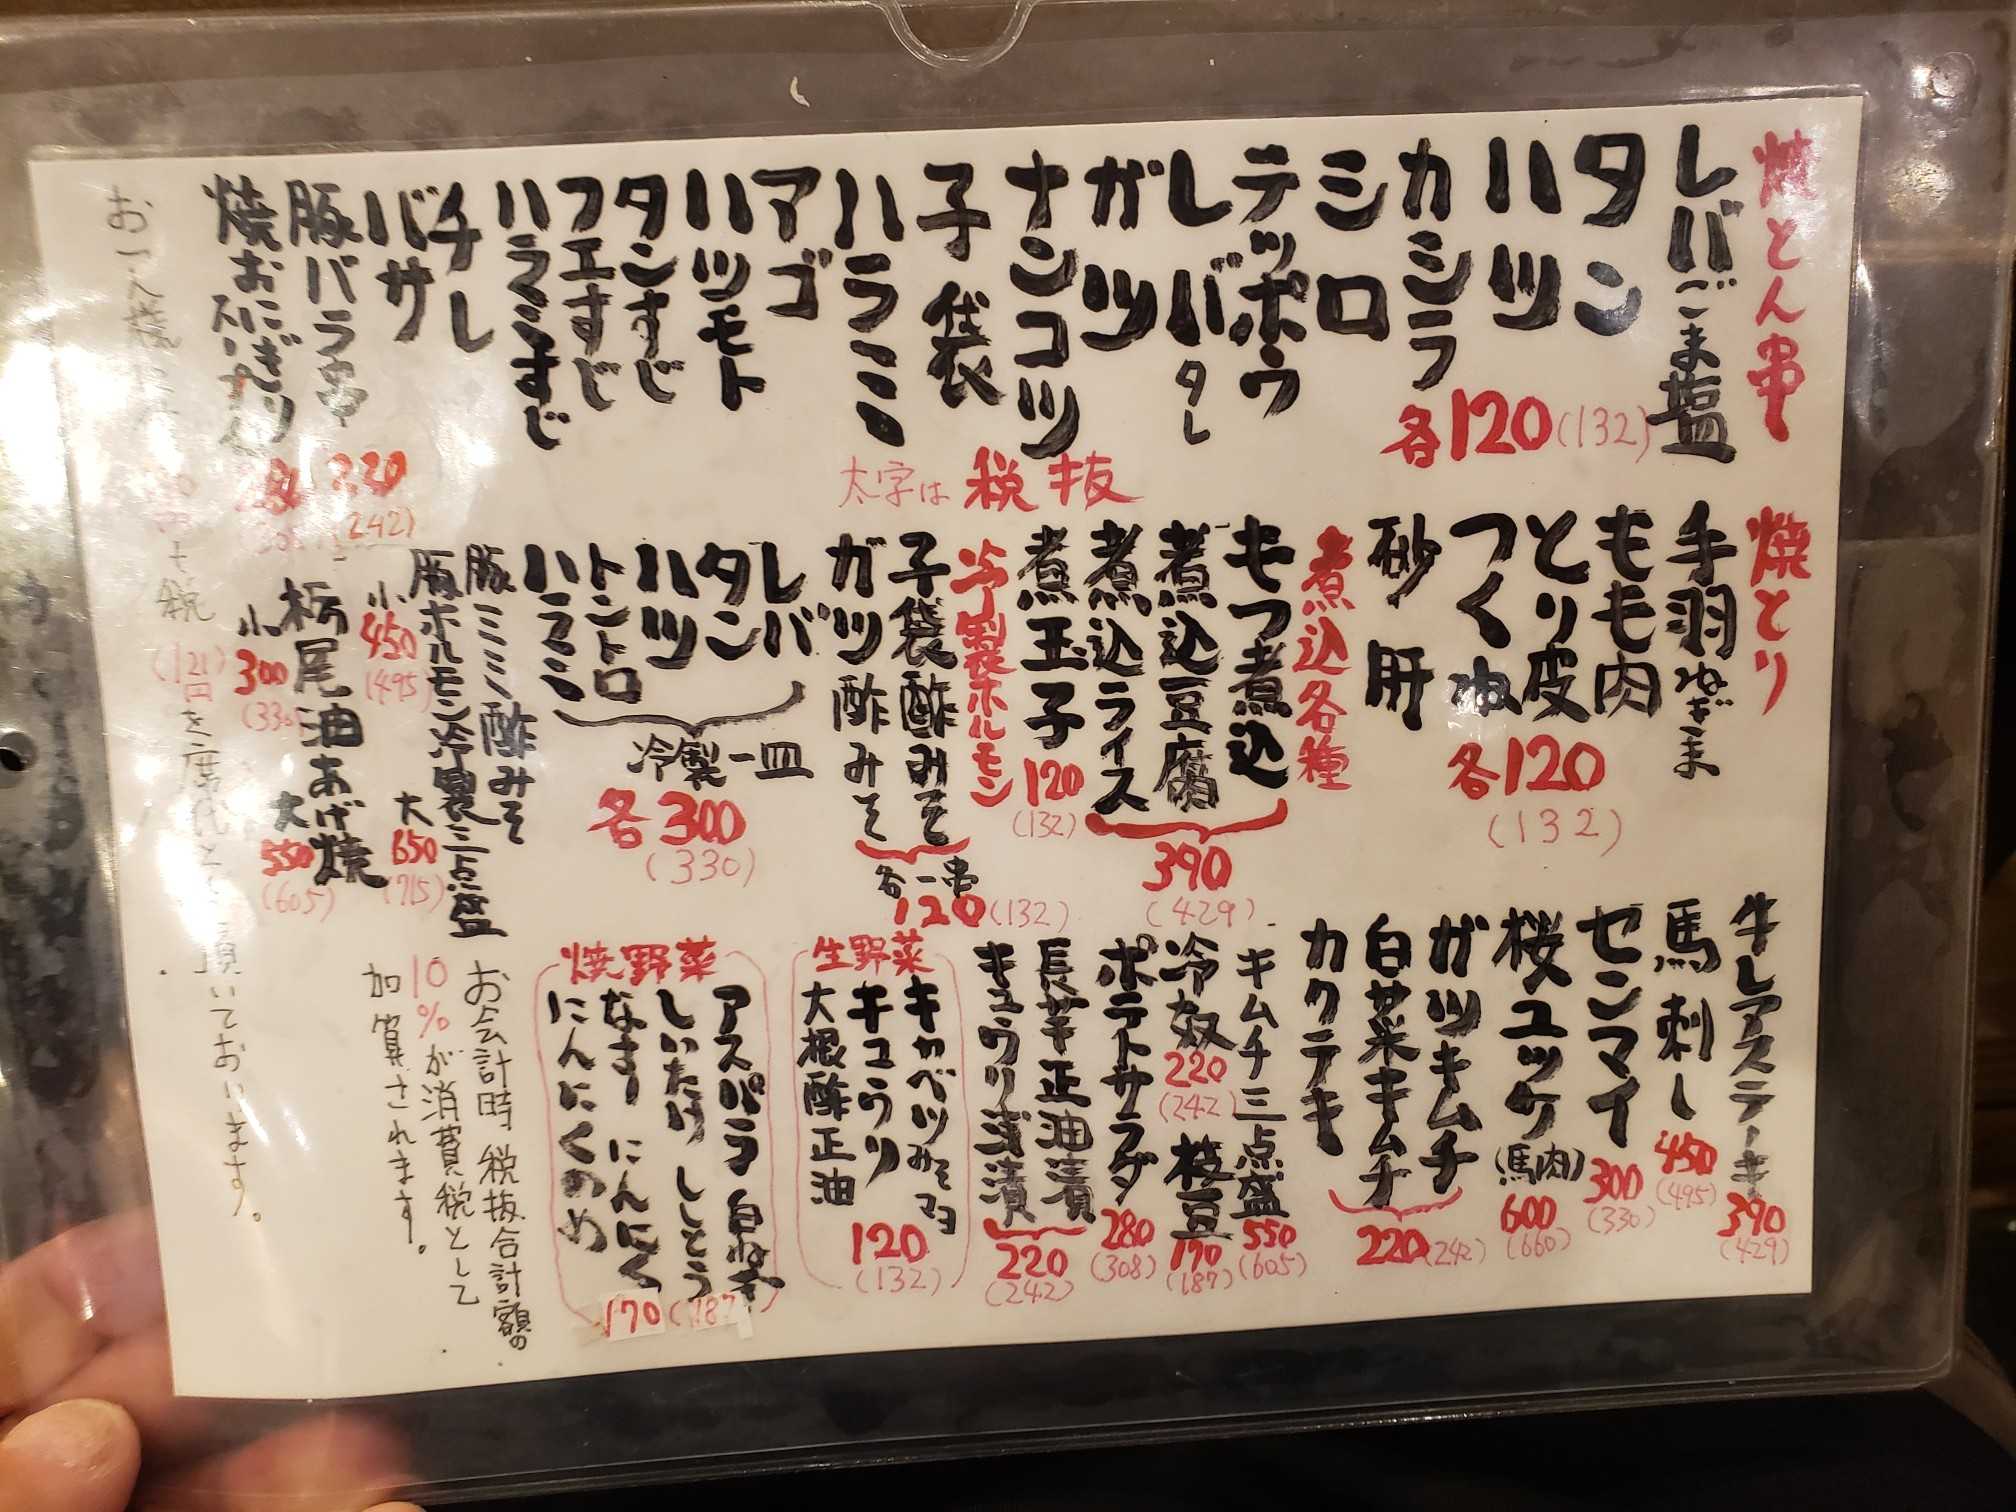 焼とん串
レバごま塩
タン
ハツ
カシラ
各120(132)
シロ
テッポウ
レバタレ
ガツ
ナンコツ
子袋
ハラミ
アゴ
ハツモト
タンすじ
フエすじ
ハラミすじ
チレ
バサ
豚バラ串
220
(242)
焼おにぎり
太字は税抜
焼とり
手羽ねぎま
もも肉
とり皮
つくね
各120
(132)
砂肝
煮込各種
もつ煮込
煮込豆腐
煮込ライス
390
(429)
煮玉子
120
(132)
冷製ホルモン
子袋酢みそ
ガツ酢みそ
各一串
120(132)
レバ
タン
ハツ
トントロ
ハラミ
冷製一皿
各300
(330)
豚ミミ酢みそ
豚ホルモン冷製三点盛
小450
(495)
大650
(715)
栃尾油あげ焼
小300
(330)
大550
(605)
牛レアステーキ
390
(429)
馬刺し
450
(495)
センマイ
300
(330)
桜ユッケ(馬肉)
600
(660)
ガツキムチ
白菜キムチ
カクテキ
220(242)
キムチ三点盛
550
(605)
冷奴
220
(242)
枝豆
170
(187)
ポテトサラダ
280
(308)
長芋正油漬
キュウリ浅漬
220
(242)
生野菜
キャベツみそマヨ
キュウリ
大根酢正油
120
(132)
焼野菜
アスパラ 白ねぎ
しいたけ ししとう
なす にんにく
にんにくのめ
170(187)
お会計時 税抜合計額の
10%が消費税として
加算されます。
(121円)を席代として頂いております。